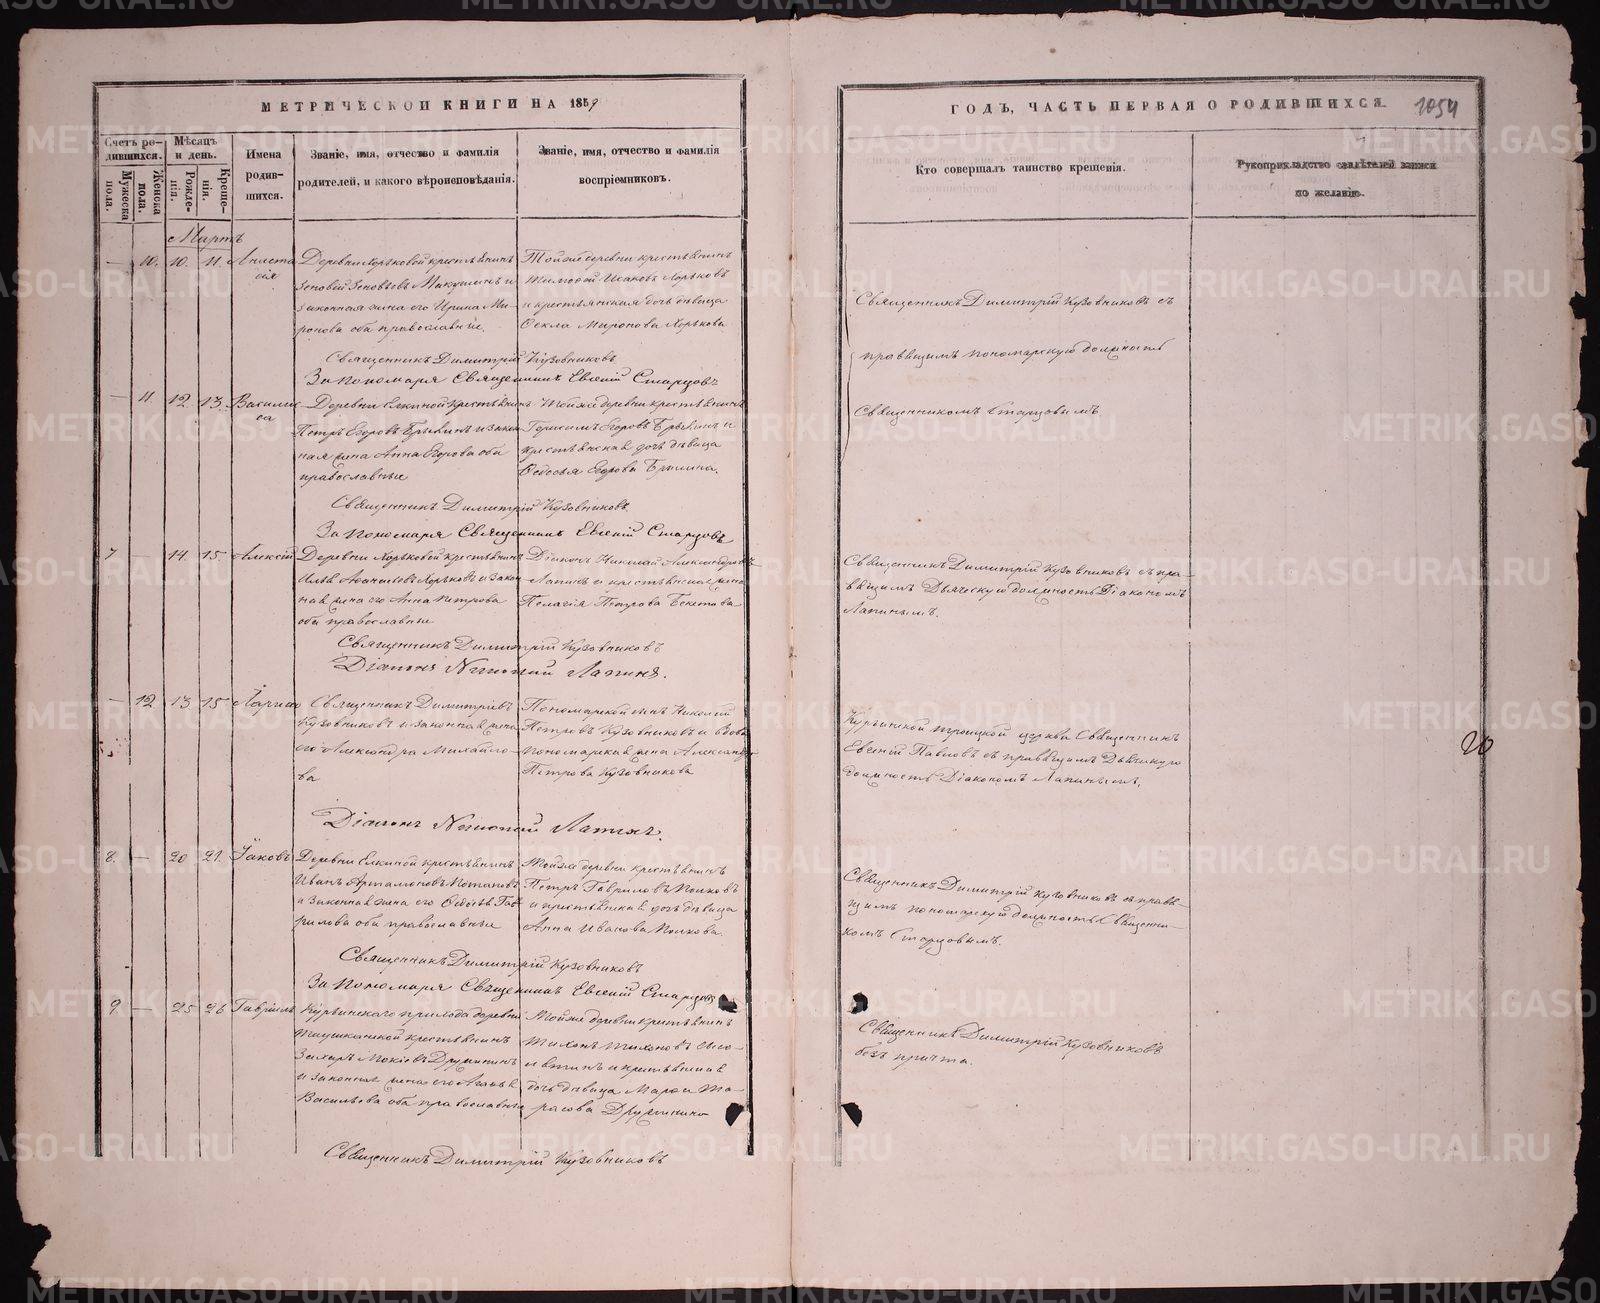 МЕТРИЧЕСКОЙ КНИГИ НА 1859
Счетъ ро-
дившихся.
Мужеска
пола.
Женска
пола.
Мѣсяцъ
и день.
Рожде-
нія.
Креще-
нія.
Имена
родив-
шихся.
Званіе, имя, отчество и фамилія
родителей, и какого вѣроисповѣданія.
Званіе, имя, отчество и фамилія
воспріемниковъ.
Мартъ
— 10. 10. 11. Анаста
сія
Деревни Хорьковой крестьянинъ
Зиновьевъ Микушинъ и
законная жена его Ирина Ми-
ронова оба православные.
Тойже деревни крестьянинъ
Исаковъ Хорьковъ
и крестьянская дочь дѣвица
Ѳекла Миронова Хорькова
Священникъ Димитрій Кузовниковъ
За Пономаря Священникъ Евгеній Старцовъ
— 11. 12. 13. Василис
са
Деревни Елкиной Крестьянинъ
Петръ Егоровъ Брылинъ и закон
ная жена Анна Егорова оба
православные
Тойже деревни крестьянинъ
Герасимъ Егоровъ Брылинъ и
крестьянская дочь дѣвица
Ѳедосья Егорова Брылина.
Священникъ Димитрій Кузовниковъ.
За Пономаря Священникъ Евгеній Старцовъ
7 — 14. 15. Алексій
Деревни Хорьковой крестьянинъ
Илья Хорьковъ и закон
ная жена его Анна Петрова
оба православные
Діаконъ Николай Александровъ
Лапинъ и крестьянская жена
Пелагія Петрова Бекетова
Священникъ Димитрій Кузовниковъ
Діаконъ Николай Лапинъ.
— 12 13 15
Священникъ Димитрій
Кузовниковъ и законная жена
его Александра Михайло-
ва
Пономарской сынъ Николай
Петровъ Кузовниковъ и вдова
пономарская жена Александра
Петрова Кузовникова
Діаконъ Николай Лапинъ.
8. — 20 21. Іаковъ
Деревни Елкиной крестьянинъ
Иванъ Артамоновъ Потаповъ
и законная жена его Гав-
рилова оба православные
Тойже деревни крестьянинъ
Петръ Гавриловъ
и крестьянская дочь дѣвица
Анна Иванова
Священникъ Димитрій Кузовниковъ
За Пономаря Священникъ Евгеній Старцовъ
9 — 25 26 Гавріилъ
Курьинскаго прихода деревни
крестьянинъ
Захаръ Мокіевъ Дружининъ
и законная жена его Агаѳья
Васильева оба православные
Тойже деревни крестьянинъ
Тихонъ Тихоновъ
и крестьянская
дочь дѣвица Марѳа Та-
расова Дружинина
Священникъ Димитрій Кузовниковъ
ГОДЪ, ЧАСТЬ ПЕРВАЯ О РОДИВШИХСЯ.
1054
Кто совершалъ таинство крещенія.
Рукоприкладство свидѣтелей записи
по желанію.
Священникъ Димитрій Кузовниковъ съ
правящимъ пономарскую должность
Священникомъ Старцовымъ
Священникъ Димитрій Кузовниковъ съ пра-
вящимъ Дьяческую должность Діакономъ
Лапинымъ.
Курьинской Троицкой церкви Священникъ
Евгеній Павловъ съ правящимъ Дьяческую
должность Діакономъ Лапинымъ.
20
Священникъ Димитрій Кузовниковъ съ правя-
щимъ пономарскую должность Священни-
комъ Старцовымъ.
Священникъ Димитрій Кузовниковъ
безъ причта.